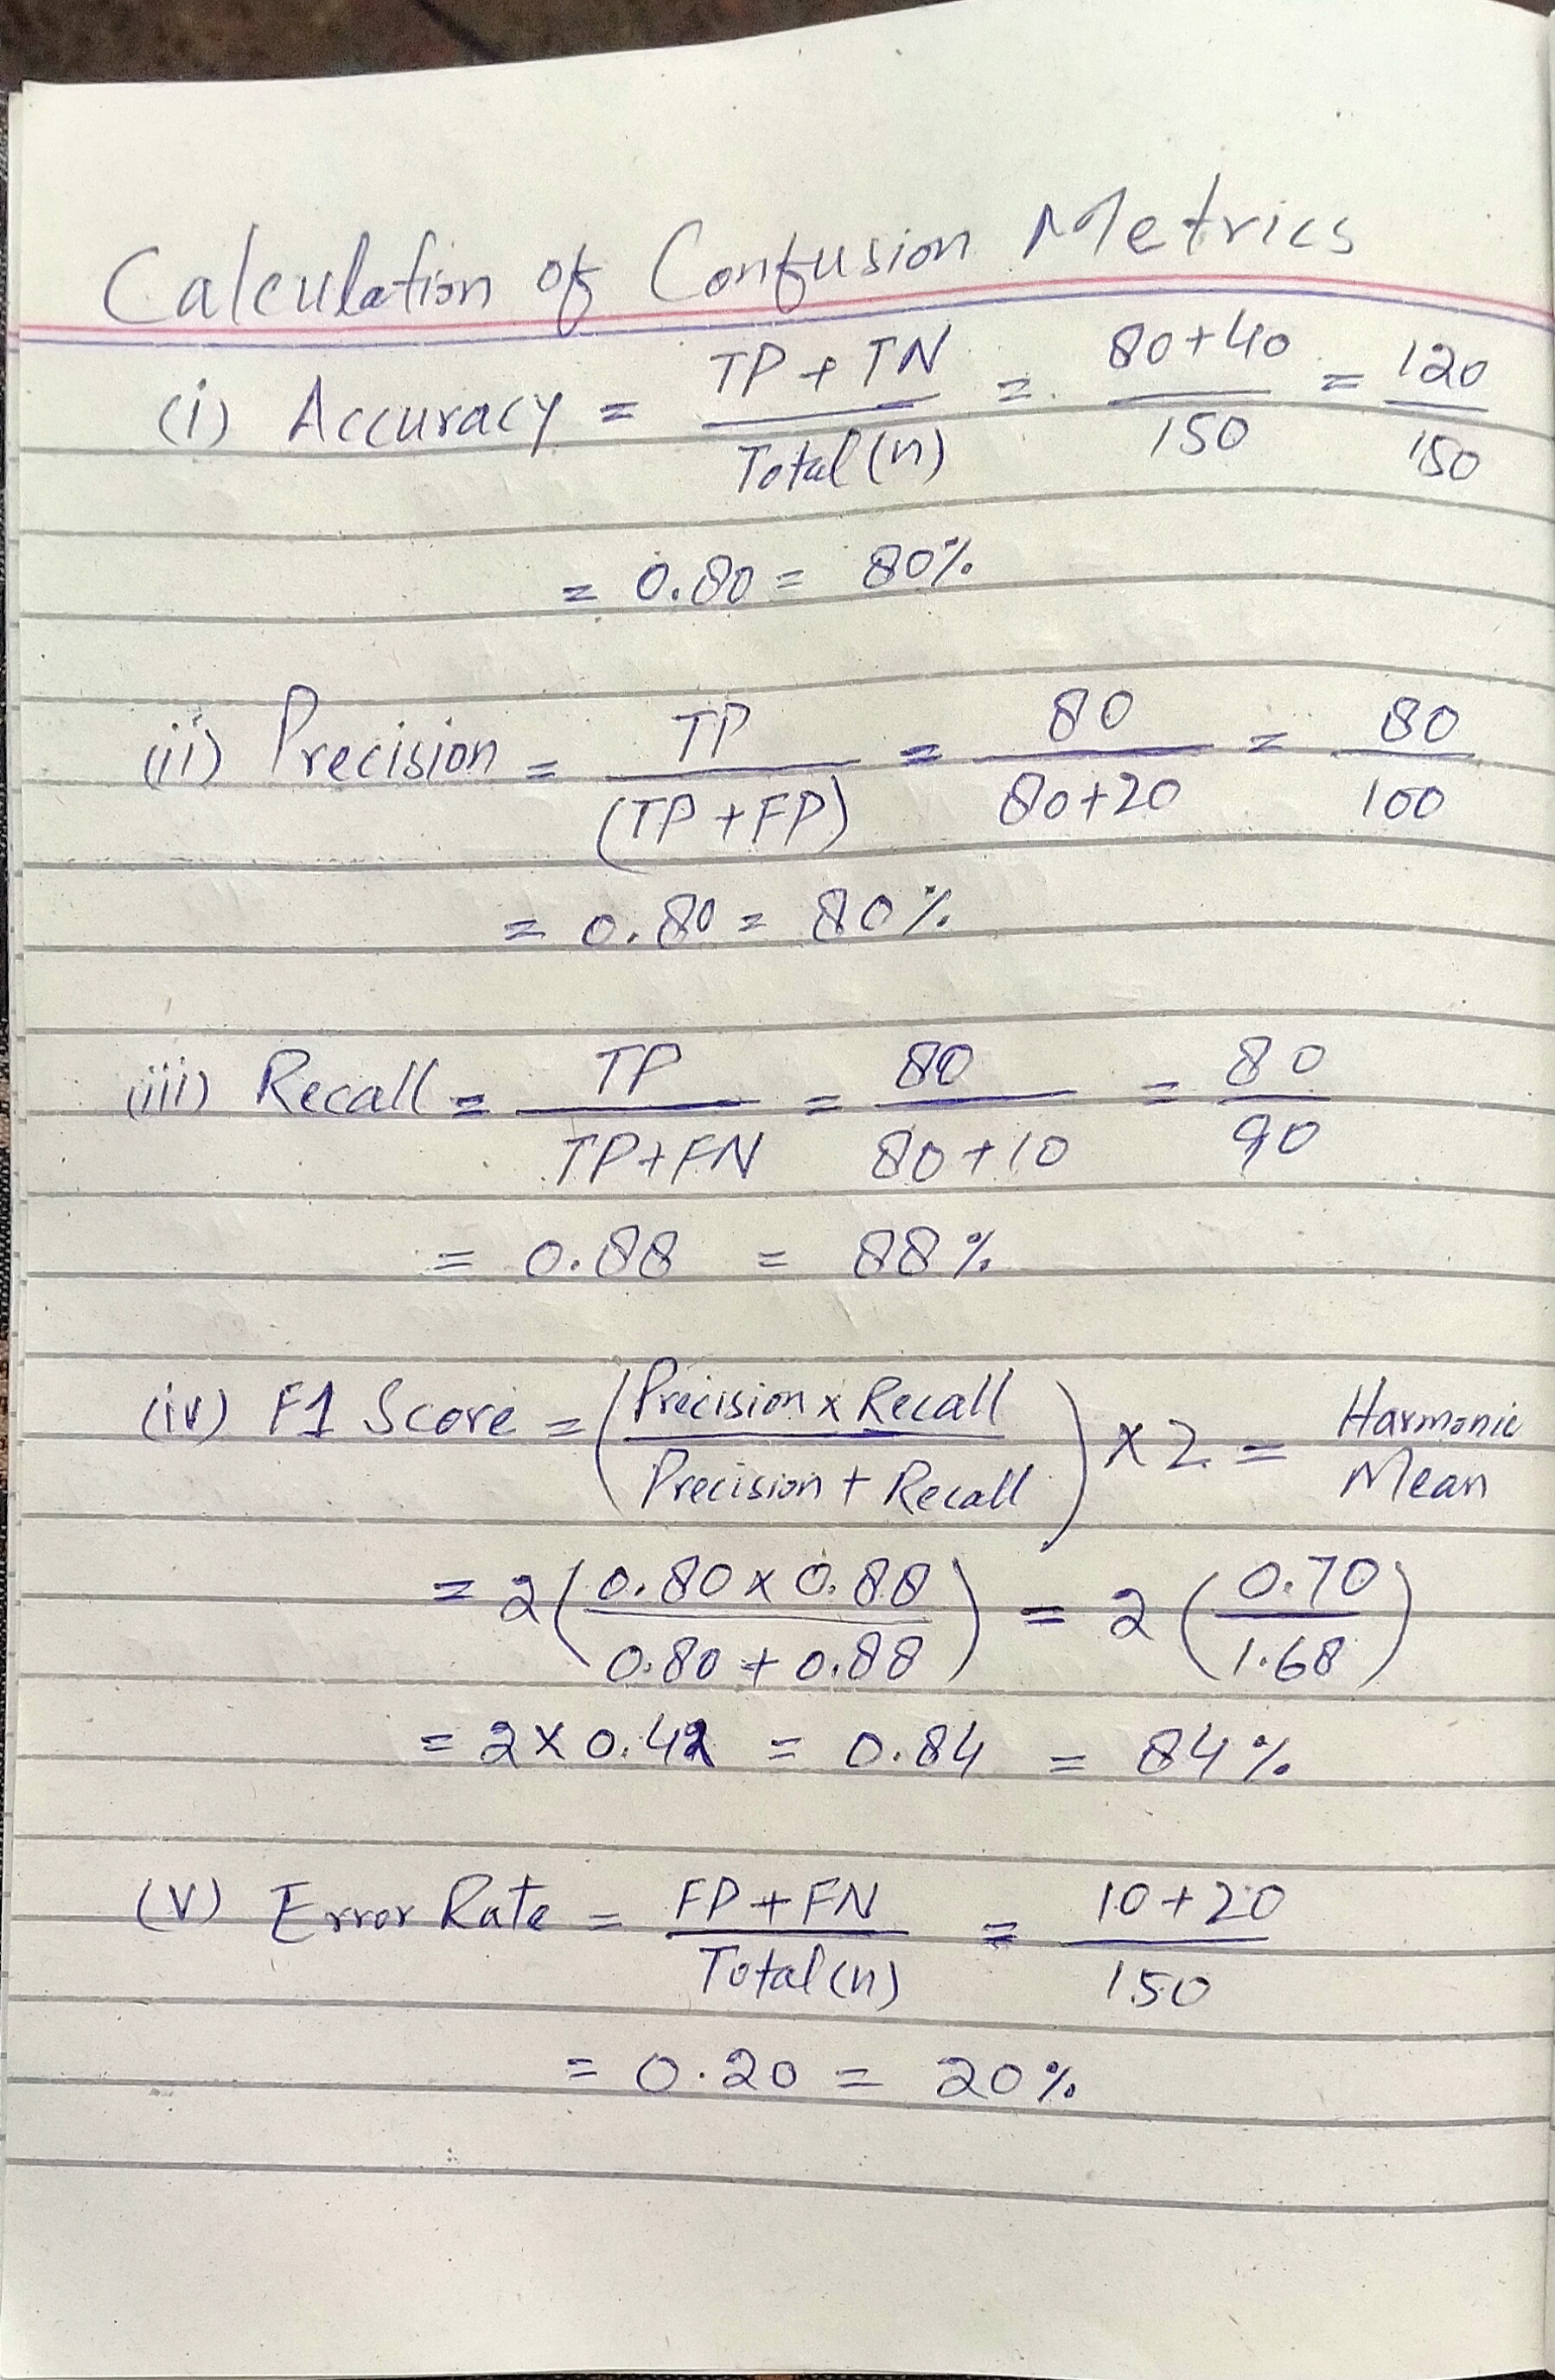 Calculation of Confusion Metrics
(i) Accuracy = TP + TN / Total (n) = 80+40 / 150 = 120 / 150
= 0.80 = 80%
(ii) Precision = TP / (TP + FP) = 80 / 80+20 = 80 / 100
= 0.80 = 80%
(iii) Recall = TP / TP+FN = 80 / 80+10 = 80 / 90
= 0.88 = 88%
(iv) F1 Score = (Precision x Recall / Precision + Recall) x 2 = Harmonic Mean
= 2 (0.80 x 0.88 / 0.80 + 0.88) = 2 (0.70 / 1.68)
= 2 x 0.42 = 0.84 = 84%
(v) Error Rate = FP + FN / Total (n) = 10+20 / 150
= 0.20 = 20%